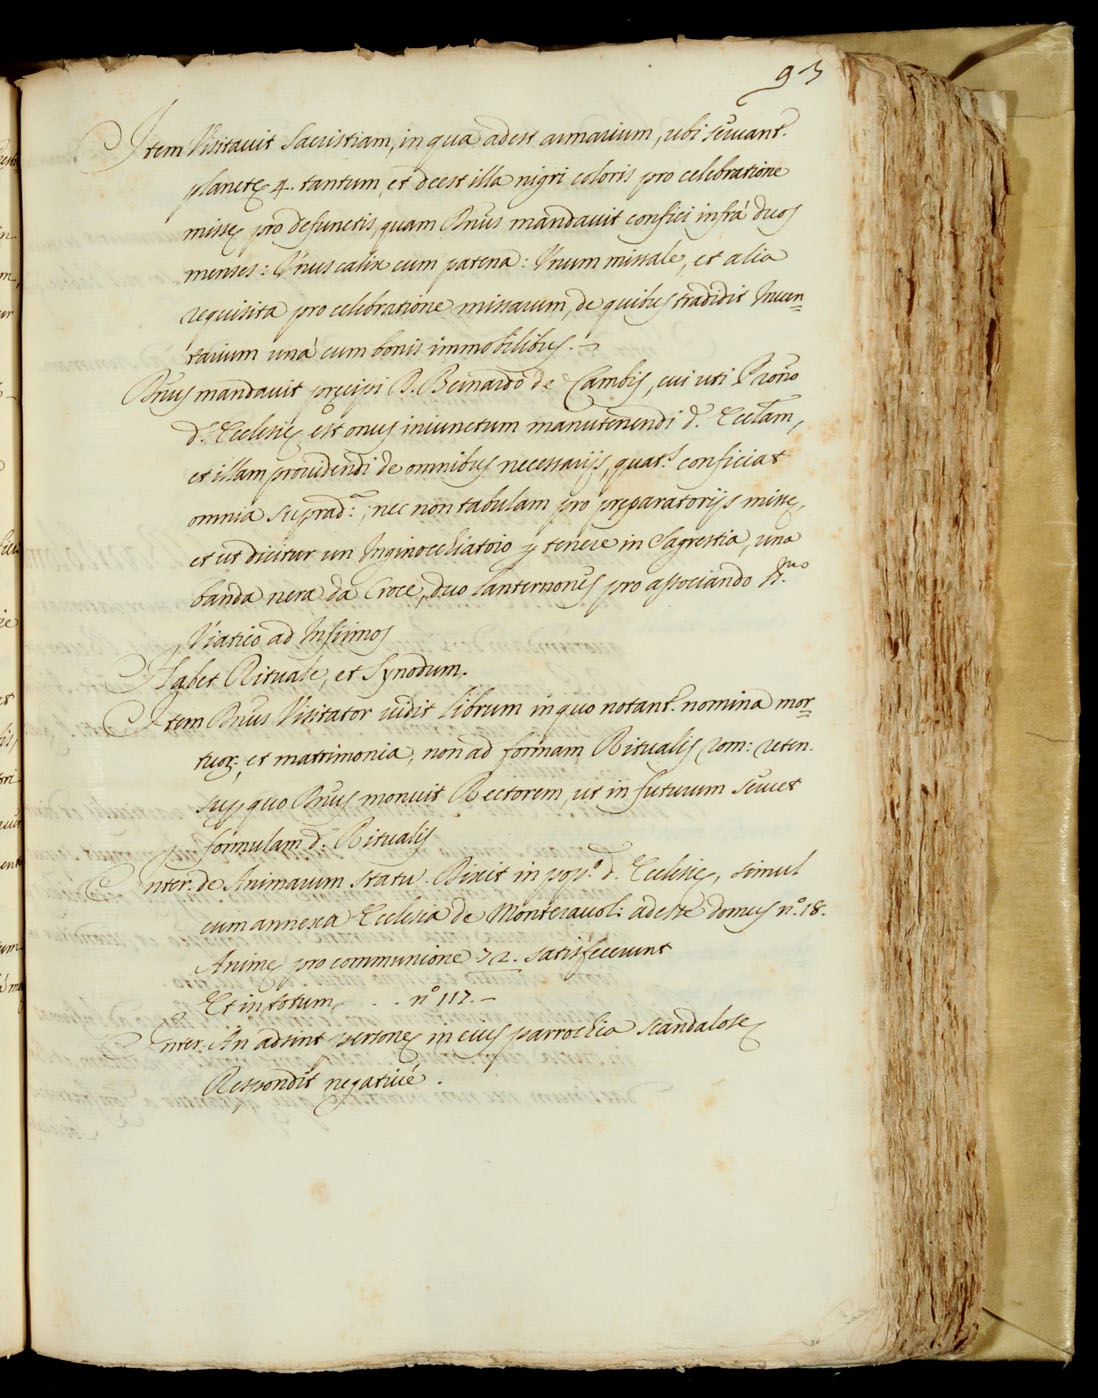 93
Item Visitavit Sacristiam, in qua adest armarium, ubi servant.
planetę 4. tantum, et deest illa nigri coloris pro celebratione
missę pro defunctis, quam Dn̄us mandavit confici infrà duos
menses: Unus calix cum patena: Unum missale, et alia
requisita pro celebratione missarum, de quibus tradidit Inven=
tarium unà cum bonis immobilibus.
Dn̄us mandavit precipi D. Bernardo de Cambis, cui uti Prōno
d.ę Ecclesię est onus iniunctum manutenendi d. Eccl̄am,
et illam providendi de omnibus necessarijs, quat.s conficiat
omnia suprad.a, nec non tabulam pro preparatorijs missę,
et ut dicitur un Inginochiatoio p tenere in Sagrestia, una
banda nera da Croce, duo lanternones pro associando SS.mo
Viatico ad Infirmos
Habet Rituale, et Synodum.
Item Dn̄us Visitator vidit librum in quo notant. nomina mor=
tuor., et matrimonia, non ad formam Ritualis rom: reten.
sup quo Dn̄us monuit Rectorem, ut in futurum servet
formulam d. Ritualis
Inter. de Animarum statu. Dixit in pop.o d. Ecclesię, simul
cum annexa Ecclesia de Monteravol: adesse domus n.o 18.
Animę pro communione 72. satisfecerunt
Et in totum . . n.o 117.
Inter. An adsint personę in eius parrochia scandalosę
Respondit negativè.